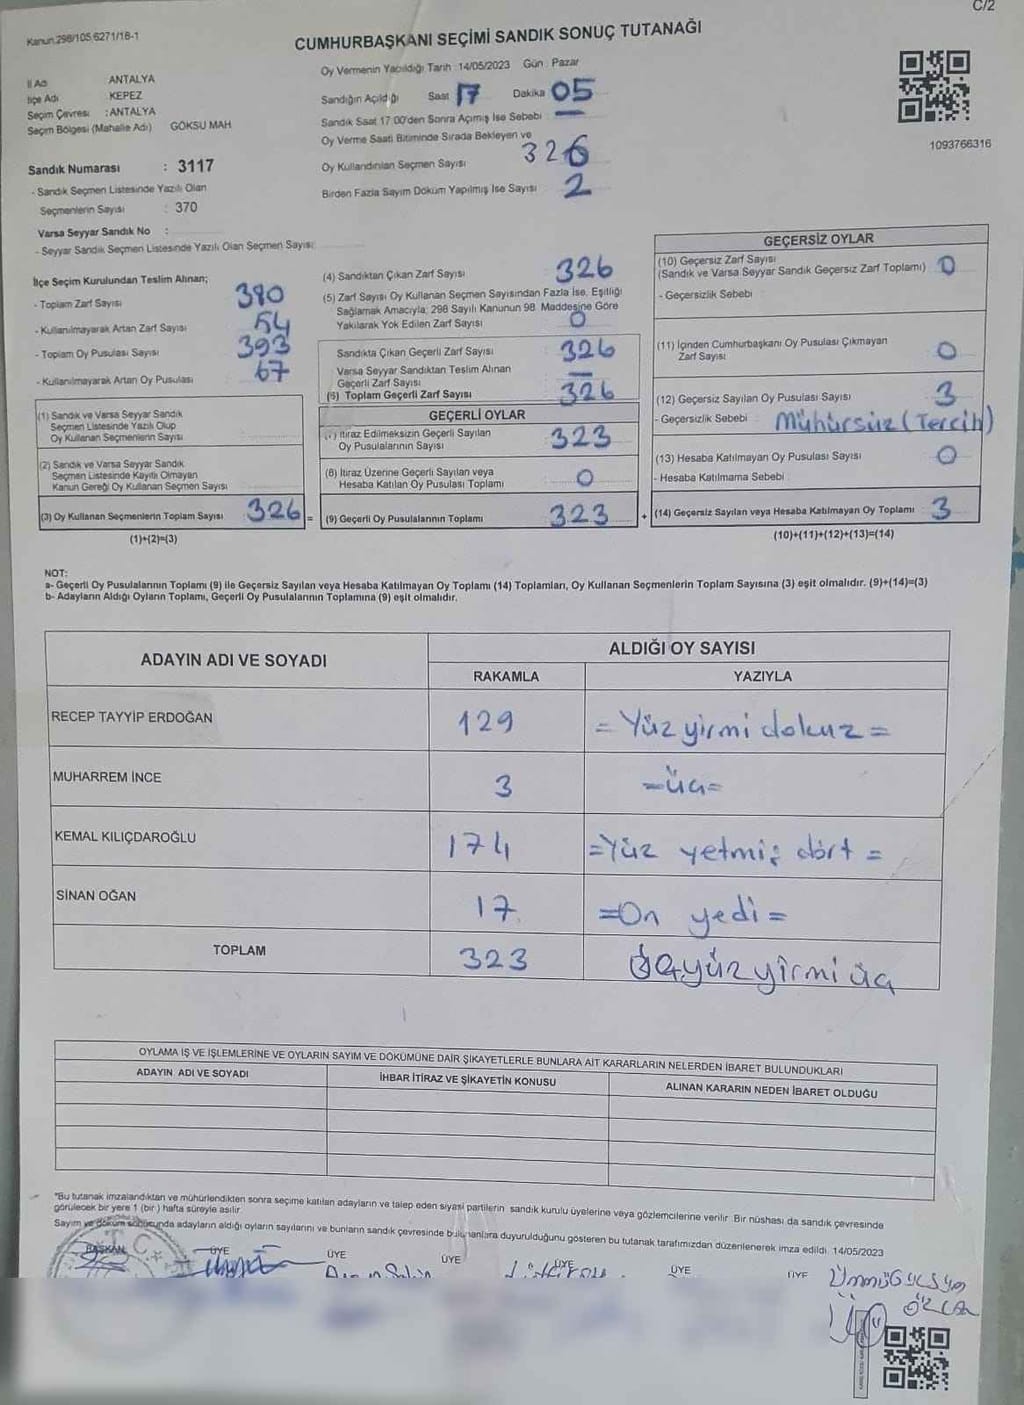 C/2
Kanun.298/105,6271/18-1
CUMHURBAŞKANI SEÇİMİ SANDIK SONUÇ TUTANAĞI
İl Adı ANTALYA
İlçe Adı KEPEZ
Seçim Çevresi : ANTALYA
Seçim Bölgesi (Mahalle Adı) GÖKSU MAH
Sandık Numarası : 3117
- Sandık Seçmen Listesinde Yazılı Olan
Seçmenlerin Sayısı : 370
Varsa Seyyar Sandık No :
- Seyyar Sandık Seçmen Listesinde Yazılı Olan Seçmen Sayısı:
Oy Vermenin Yapıldığı Tarih :14/05/2023 Gün : Pazar
Sandığın Açıldığı Saat 17 Dakika 05
Sandık Saat 17.00'den Sonra Açımış İse Sebebi : —
Oy Verme Saati Bitiminde Sırada Bekleyen ve
Oy Kullandırılan Seçmen Sayısı 326
Birden Fazla Sayım Döküm Yapılmış İse Sayısı 2
1093766316
İlçe Seçim Kurulundan Teslim Alınan;
- Toplam Zarf Sayısı 380
- Kullanılmayarak Artan Zarf Sayısı 54
- Toplam Oy Pusulası Sayısı 393
- Kullanılmayarak Artan Oy Pusulası 67
(1) Sandık ve Varsa Seyyar Sandık
Seçmen Listesinde Yazılı Olup
Oy Kullanan Seçmenlerin Sayısı
(2) Sandık ve Varsa Seyyar Sandık
Seçmen Listesinde Kayıtlı Olmayan
Kanun Gereği Oy Kullanan Seçmen Sayısı
(3) Oy Kullanan Seçmenlerin Toplam Sayısı 326 =
(1)+(2)=(3)
(4) Sandıktan Çıkan Zarf Sayısı 326
(5) Zarf Sayısı Oy Kullanan Seçmen Sayısından Fazla İse, Eşitliği
Sağlamak Amacıyla; 298 Sayılı Kanunun 98. Maddesine Göre
Yakılarak Yok Edilen Zarf Sayısı 0
Sandıkta Çıkan Geçerli Zarf Sayısı 326
Varsa Seyyar Sandıktan Teslim Alınan
Geçerli Zarf Sayısı —
(6) Toplam Geçerli Zarf Sayısı 326
GEÇERLİ OYLAR
(7) İtiraz Edilmeksizin Geçerli Sayılan
Oy Pusulalarının Sayısı 323
(8) İtiraz Üzerine Geçerli Sayılan veya
Hesaba Katılan Oy Pusulası Toplamı 0
(9) Geçerli Oy Pusulalarının Toplamı 323 +
GEÇERSİZ OYLAR
(10) Geçersiz Zarf Sayısı
(Sandık ve Varsa Seyyar Sandık Geçersiz Zarf Toplamı) 0
- Geçersizlik Sebebi :
(11) İçinden Cumhurbaşkanı Oy Pusulası Çıkmayan
Zarf Sayısı 0
(12) Geçersiz Sayılan Oy Pusulası Sayısı 3
- Geçersizlik Sebebi : Mühürsüz (Tercih)
(13) Hesaba Katılmayan Oy Pusulası Sayısı 0
- Hesaba Katılmama Sebebi :
(14) Geçersiz Sayılan veya Hesaba Katılmayan Oy Toplamı 3
(10)+(11)+(12)+(13)=(14)
NOT:
a- Geçerli Oy Pusulalarının Toplamı (9) ile Geçersiz Sayılan veya Hesaba Katılmayan Oy Toplamı (14) Toplamları, Oy Kullanan Seçmenlerin Toplam Sayısına (3) eşit olmalıdır. (9)+(14)=(3)
b- Adayların Aldığı Oyların Toplamı, Geçerli Oy Pusulalarının Toplamına (9) eşit olmalıdır.
ADAYIN ADI VE SOYADI
ALDIĞI OY SAYISI
RAKAMLA YAZIYLA
RECEP TAYYİP ERDOĞAN 129 = Yüz yirmi dokuz =
MUHARREM İNCE 3 =üç=
KEMAL KILIÇDAROĞLU 174 =Yüz yetmiş dört =
SİNAN OĞAN 17 =On yedi =
TOPLAM 323 üçyüz yirmi üç
OYLAMA İŞ VE İŞLEMLERİNE VE OYLARIN SAYIM VE DÖKÜMÜNE DAİR ŞİKAYETLERLE BUNLARA AİT KARARLARIN NELERDEN İBARET BULUNDUKLARI
ADAYIN ADI VE SOYADI İHBAR İTİRAZ VE ŞİKAYETİN KONUSU ALINAN KARARIN NEDEN İBARET OLDUĞU
"Bu tutanak imzalandıktan ve mühürlendikten sonra seçime katılan adayların ve talep eden siyasi partilerin sandık kurulu üyelerine veya gözlemcilerine verilir. Bir nüshası da sandık çevresinde
görülecek bir yere 1 (bir) hafta süreyle asılır.
Sayım ve döküm sonucunda adayların aldığı oyların sayılarını ve bunların sandık çevresinde bulunanlara duyurulduğunu gösteren bu tutanak tarafımızdan düzenlenerek imza edildi. 14/05/2023
BAŞKAN ÜYE ÜYE ÜYE ÜYE ÜYE ÜYE
T.C.
ÖZCAN